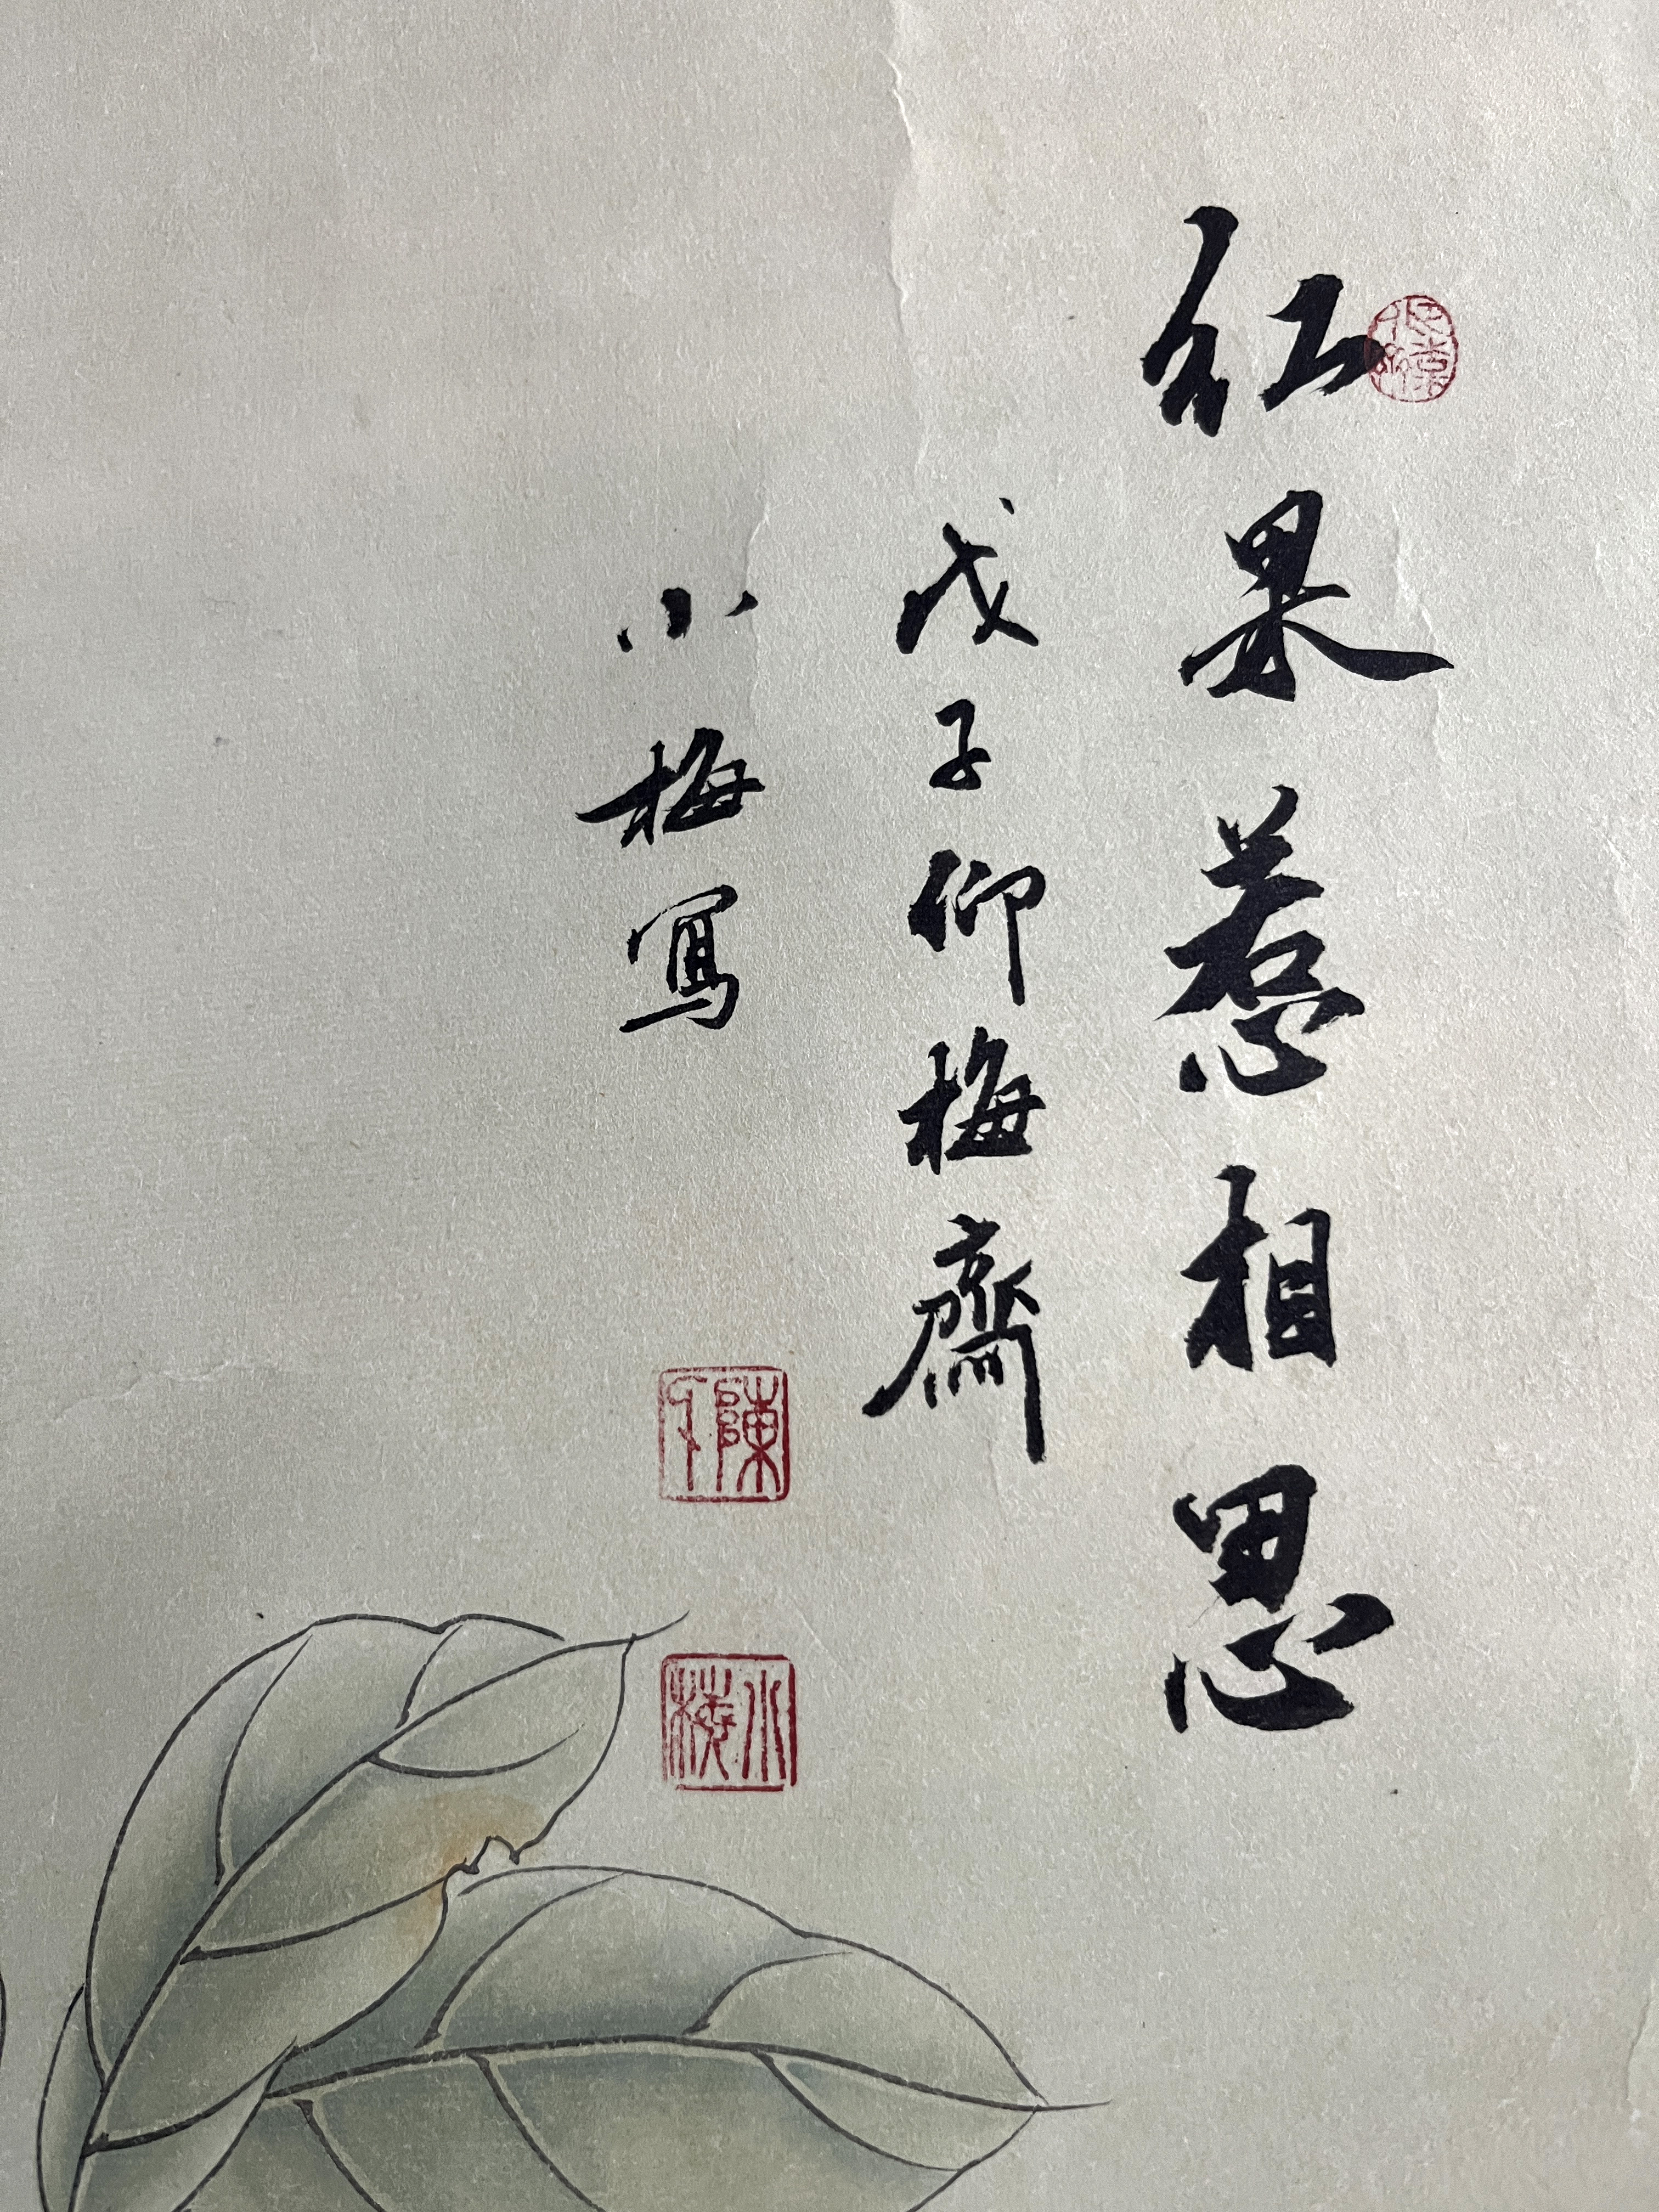 红果惹相思
戊子仰梅齋
小梅寫
陳
小梅